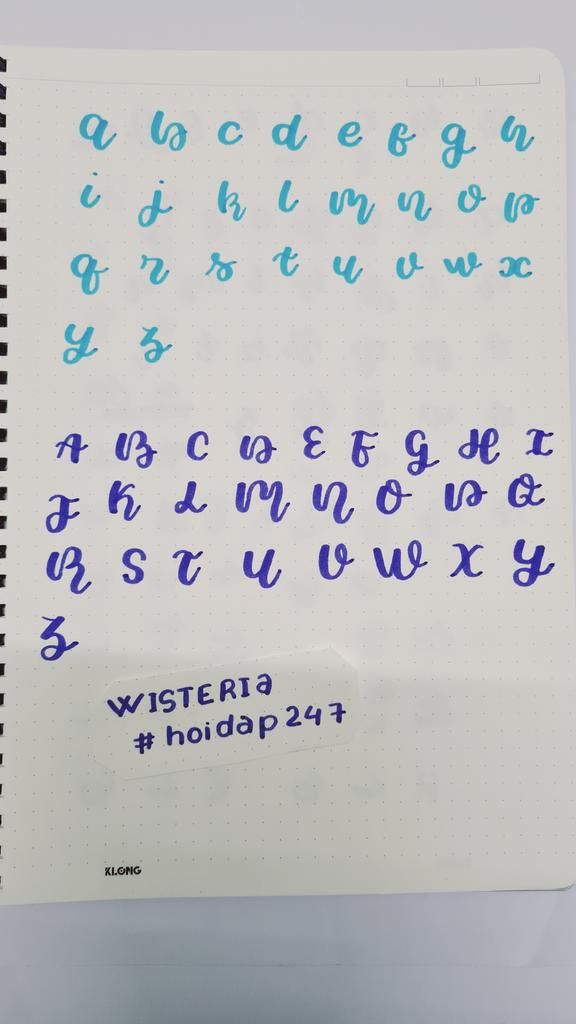 a b c d e f g h
i j k l m n o p
q r s t u v w x
y z
A B C D E F G H I
J K L M N O P Q
R S T U V W X Y
Z
WISTERIa
# hoidap 247
KLONG